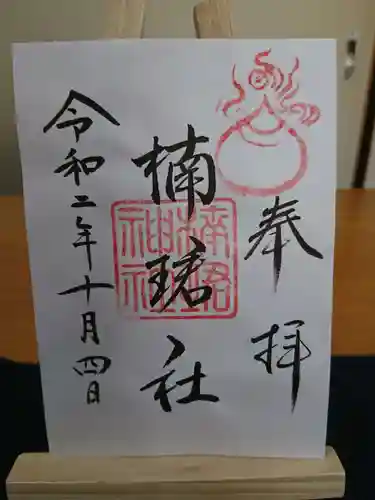 奉拝
楠珺社
令和二年十月四日
楠珺
神社